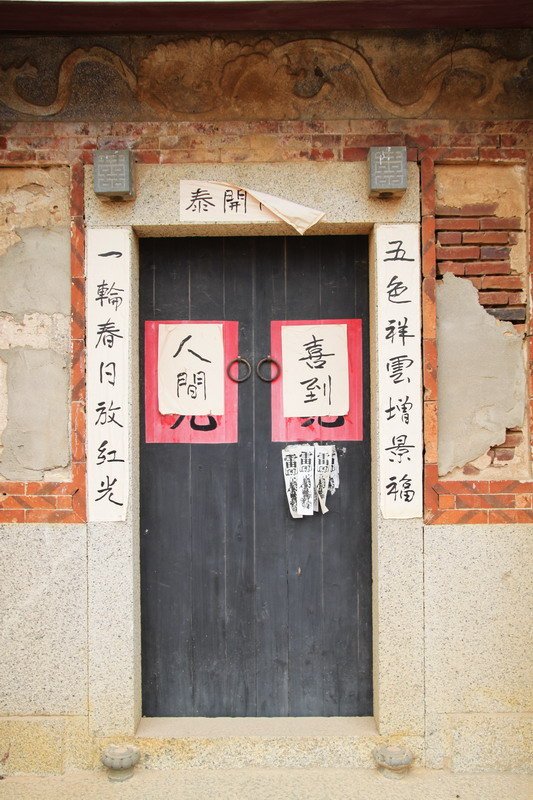 開泰
五色祥雲增景福
一輪春日放紅光
喜到
人間
雷
雷
雷